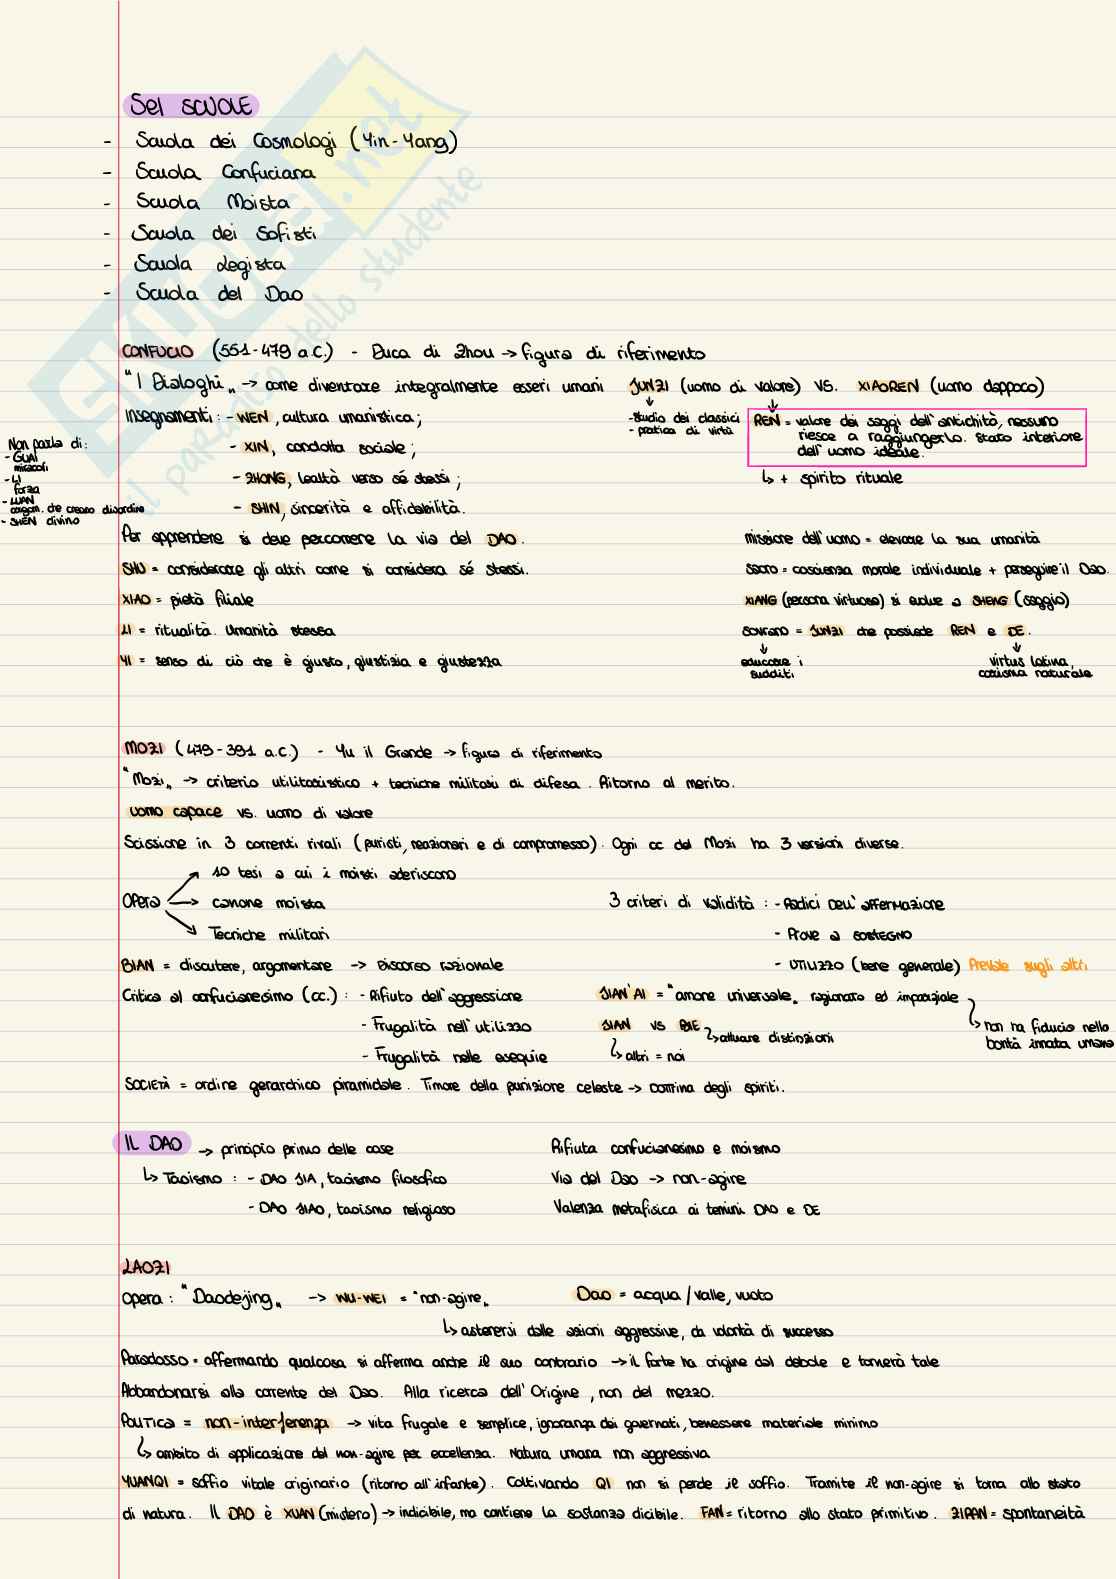 SEI SCUOLE
- Scuola dei Cosmologi (Yin-Yang)
- Scuola Confuciana
- Scuola Moista
- Scuola dei Sofisti
- Scuola Legista
- Scuola del Dao
CONFUCIO (551-479 a.C.) - Duca di Zhou → figura di riferimento
"I Dialoghi" → come diventare integralmente esseri umani JUNZI (uomo di valore) VS. XIAOREN (uomo dappoco)
- studio dei classici
- pratica di virtù
REN = valore dei saggi dell'antichità, nessuno
riesce a raggiungerlo. Stato interiore
dell'uomo ideale.
↳ + spirito rituale
Insegnamenti: - WEN, cultura umanistica;
- XIN, condotta sociale;
- ZHONG, lealtà verso sé stessi;
- SHIN, sincerità e affidabilità.
Non parla di:
- GUAI
miracoli
- LI
forza
- LUAN
argom. che creano disordine
- SHEN divino
Per apprendere si deve percorrere la via del DAO.
SHU = considerare gli altri come si considera sé stessi.
XIAO = pietà filiale
LI = ritualità. Umanità stessa
YI = senso di ciò che è giusto, giustizia e giustezza
missione dell'uomo = elevare la sua umanità
sacro = coscienza morale individuale + perseguire il Dao.
XIANG (persona virtuosa) si evolve a SHENG (saggio)
sovrano = JUNZI che possiede REN e DE.
educare i
sudditi
virtus latina,
carisma naturale
MOZI (479-391 a.C.) - Yu il Grande → figura di riferimento
"Mozi" → criterio utilitaristico + tecniche militari di difesa. Ritorno al merito.
uomo capace vs. uomo di valore
Scissione in 3 correnti rivali (puristi, reazionari e di compromesso). Ogni cc del Mozi ha 3 versioni diverse.
Opera → 10 tesi a cui i moisti aderiscono
→ canone moista
→ Tecniche militari
3 criteri di validità: - Radici dell'affermazione
- Prove a sostegno
- UTILIZZO (bene generale) Prevale sugli altri
BIAN = discutere, argomentare → Discorso razionale
Critica al confucianesimo (cc.): - Rifiuto dell'aggressione
- Frugalità nell'utilizzo
- Frugalità nelle esequie
JIAN'AI = "amore universale" ragionato ed imparziale
↳ non ha fiducia nella
bontà innata umana
JIAN VS BIE ↳ attuare distinzioni
↳ altri = noi
SOCIETÀ = ordine gerarchico piramidale. Timore della punizione celeste → dottrina degli spiriti.
IL DAO → principio primo delle cose
↳ Taoismo: - DAO JIA, taoismo filosofico
- DAO JIAO, taoismo religioso
Rifiuta confucianesimo e moismo
Via del Dao → non-agire
Valenza metafisica ai termini DAO e DE
LAOZI
Opera: "Daodejing" → WU-WEI = "non-agire" Dao = acqua / valle, vuoto
↳ astenersi dalle azioni aggressive, da volontà di successo
Paradosso = affermando qualcosa si afferma anche il suo contrario → il forte ha origine dal debole e tornerà tale
Abbandonarsi alla corrente del Dao. Alla ricerca dell'Origine, non del mezzo.
POLITICA = non-interferenza → vita frugale e semplice, ignoranza dei governati, benessere materiale minimo
↳ ambito di applicazione del non-agire per eccellenza. Natura umana non aggressiva
YUANQI = soffio vitale originario (ritorno all'infante). Coltivando QI non si perde il soffio. Tramite il non-agire si torna allo stato
di natura. Il DAO è XUAN (mistero) → indicibile, ma contiene la sostanza dicibile. FAN = ritorno allo stato primitivo. ZIRAN = spontaneità
SKUOLA.net
il paradiso dello studente